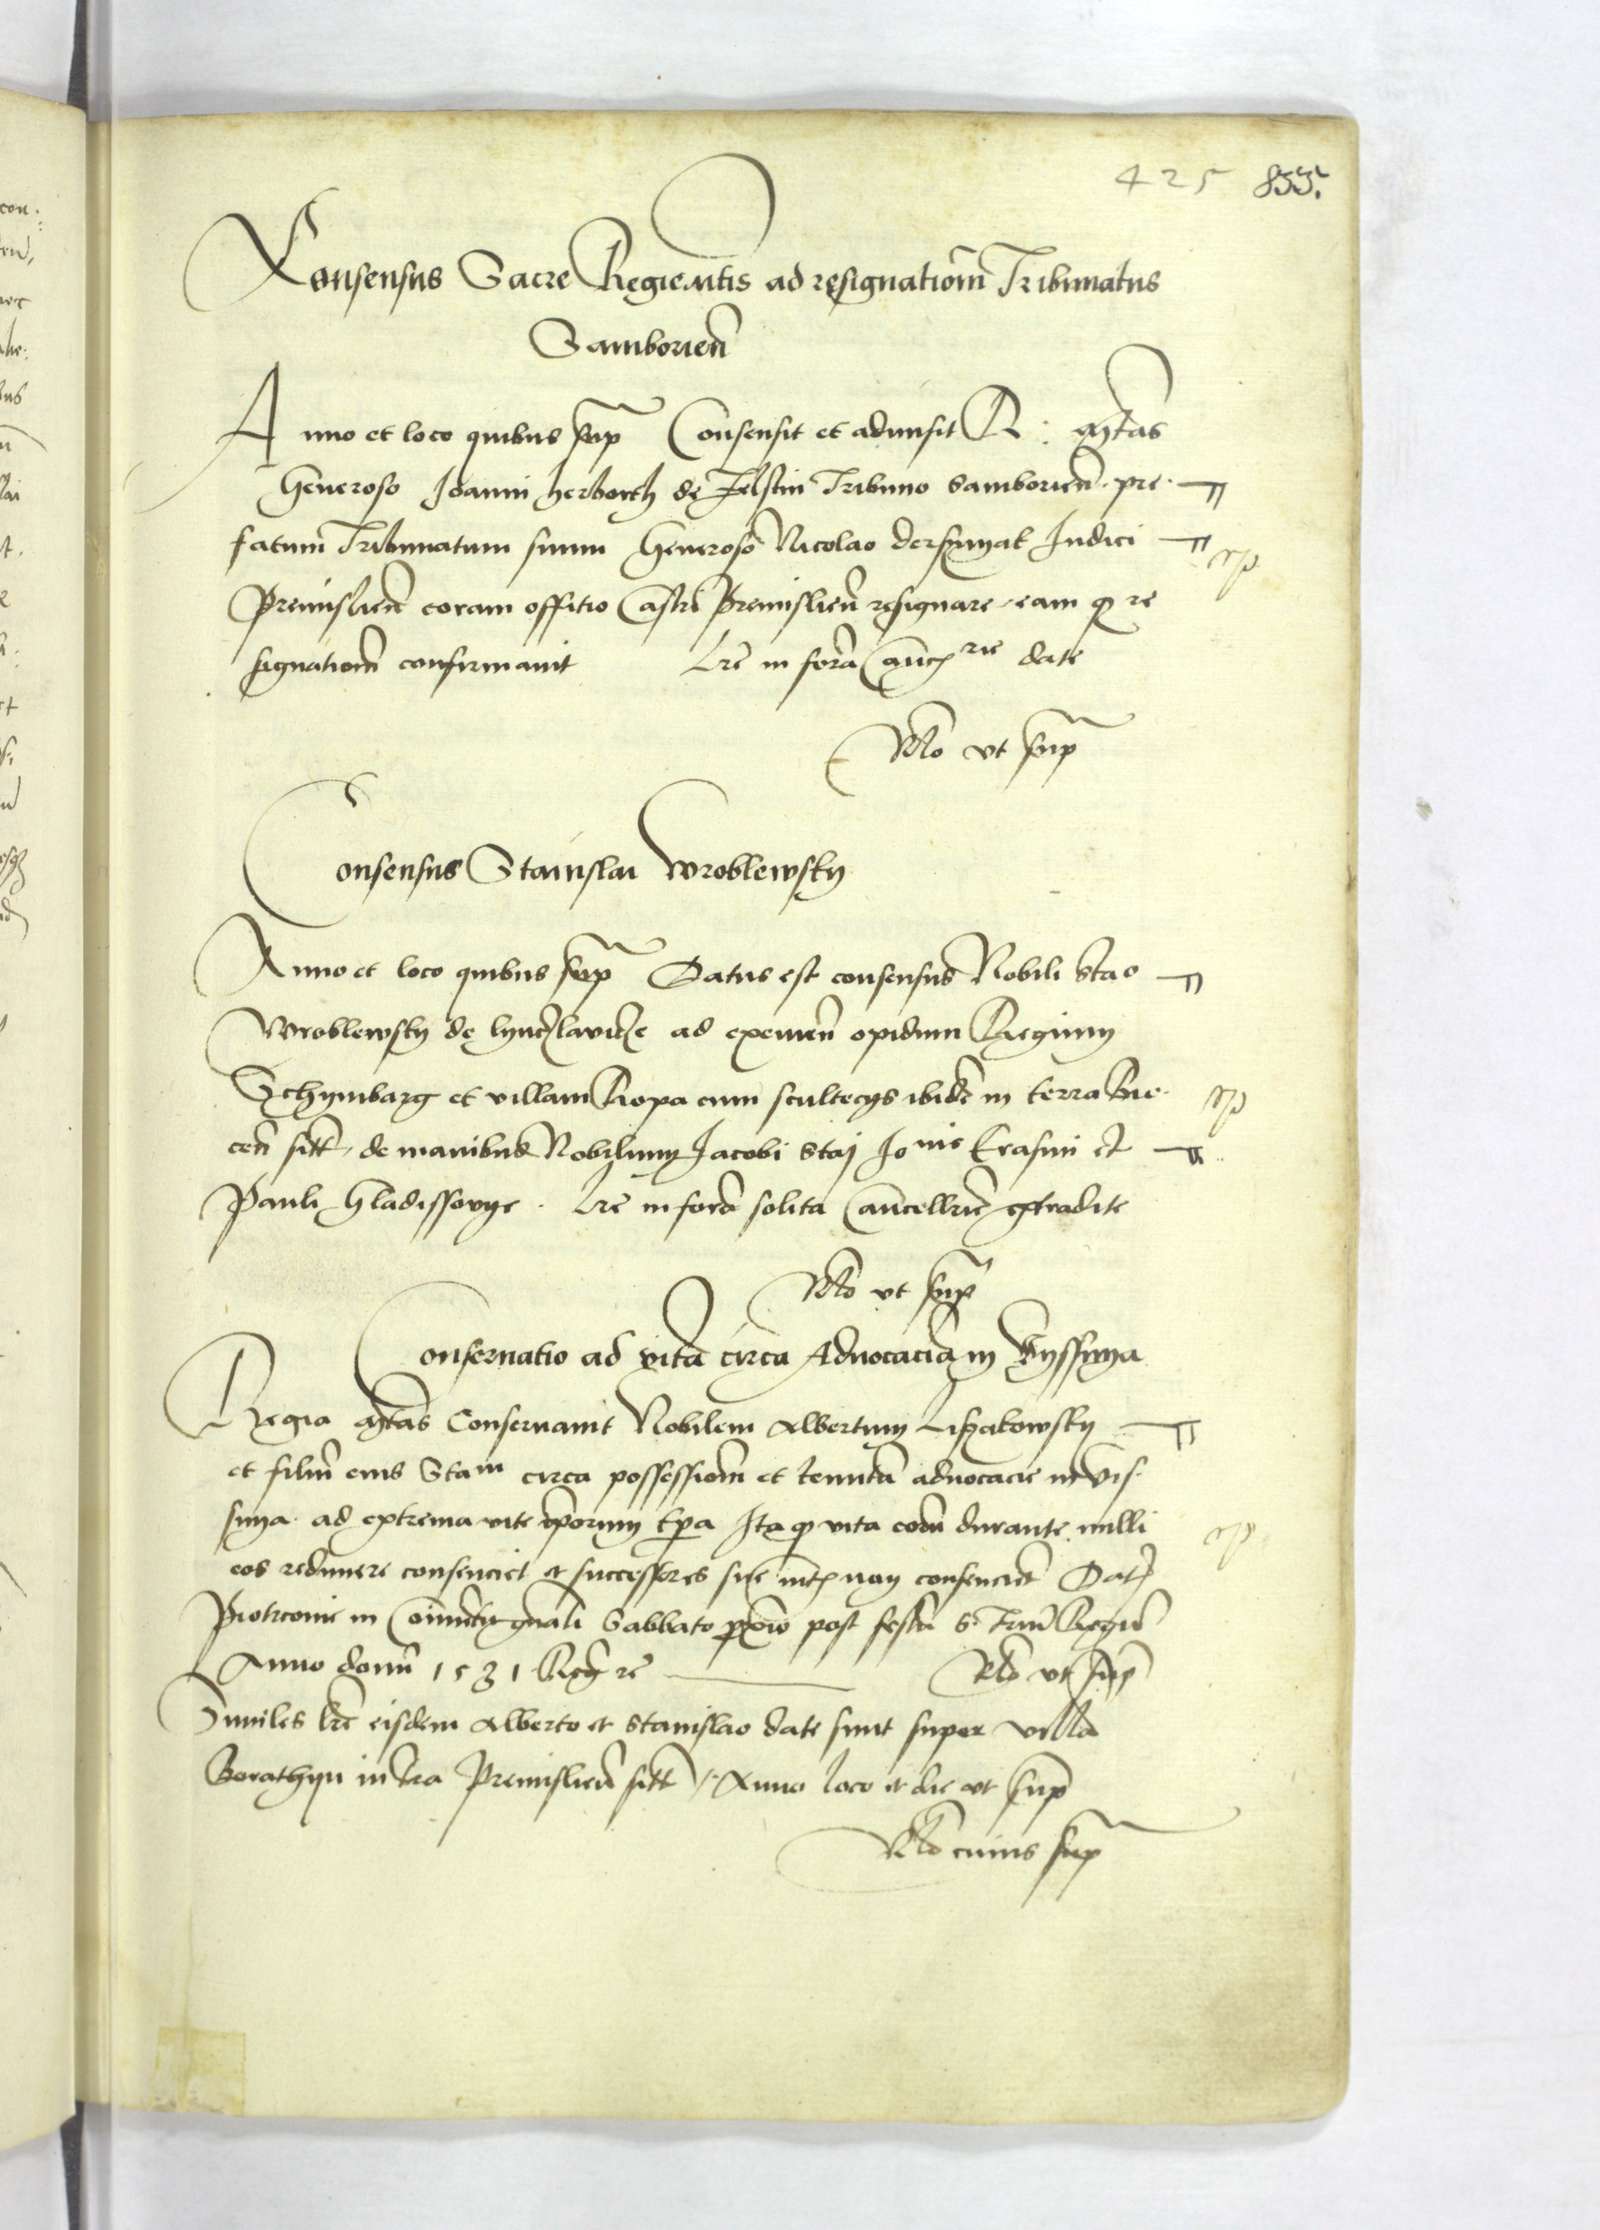 425 855.
Consensus Sacre Regie Mtis ad resignationem Tribunatus
Samborien
Anno et loco quibus sup Consensit et admisit R: Mtas
Generoso Joanni herborth de Felstin Tribuno Samborien. pre
fatum Tribunatum suum Generoso Nicolao dersnyak Judici
Premislien coram offitio Castri Premislien resignare, eam q re
signationem confirmavit Lre in forma Cancrie date
Rlo ut sup
Consensus Stanislai Wroblewsky
Anno et loco quibus sup Datus est consensus Nobili Stao
Wroblewsky de ad exemen opidum Regium
Schymbarg et villam Ropa cum scultecys ibidem in terra Bie
cen sitt, de manibus Nobilium Jacobi Stai Jonnis Erasmi et
Pauli Gladissovye. Lre in forma solita Cancellrie extradite
Rlo ut sup
Conservatio ad vitam circa Advocaciam in Vyssnya
Regia Mtas Conservavit Nobilem Albertum
et filium eius Stam circa possessionem et tenutam advocacie in Vis
snya ad extrema vite ipsorum tpa Ita q vita eorum durante nulli
eos redimere consenciet et successores sue mtis non consencient Dat
Piotrcovie in Conventu gnali Sabbato proximo post festum S. Trium Regum
Anno domini 1531 Regni re Rlo ut sup
Similes lre eisdem Alberto et Stanislao date sunt super villa
Borathyn in tra Premislien sitt. Anno loco et die ut sup
Rlo cuius sup